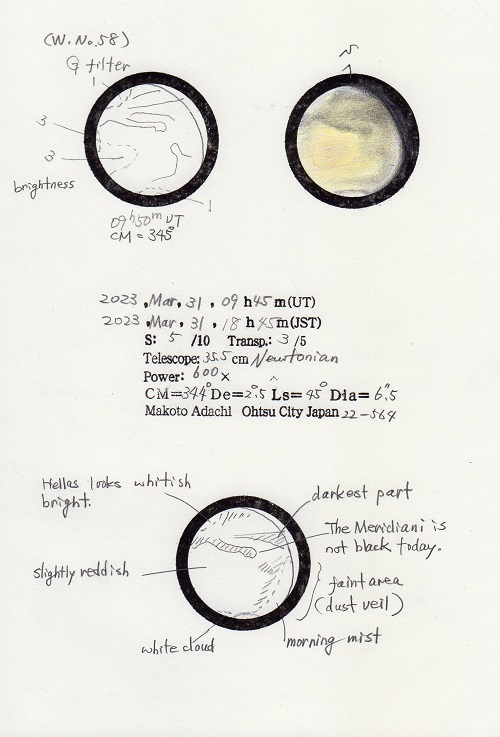 (W.No.58)
G filter
1
3
3
brightness
1
09h50m UT
CM = 345°
S
2023, Mar, 31, 09 h45m(UT)
2023, Mar, 31, 18 h45m(JST)
S: 5 /10 Transp.: 3 /5
Telescope: 35.5 cm Newtonian
Power: 600×
CM=344° De=2°.5 Ls=45° Dia=6".5
Makoto Adachi Ohtsu City Japan 22-564
Hellas looks whitish
bright.
darkest part
The Meridiani is
not black today.
slightly reddish
faint area
(dust veil)
morning mist
white cloud